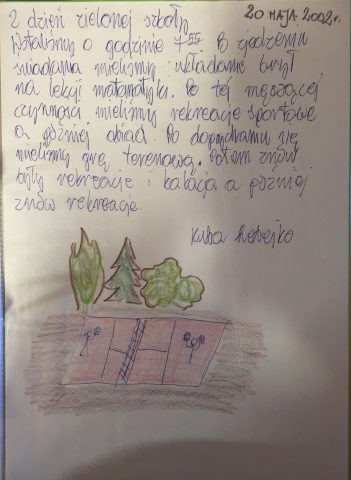 2 dzień zielonej szkoły
20 MAJA 2002r.
Wstaliśmy o godzinie 7 55. Po zjedzeniu
śniadania mieliśmy układanie brył
na lekcji matematyki. Po tej męczącej
czynności mieliśmy rekreacje sportowe
a później obiad. Po
mieliśmy grę terenową. Potem znów
były rekreacje i kolacja a później
znów rekreacje.
Kuba